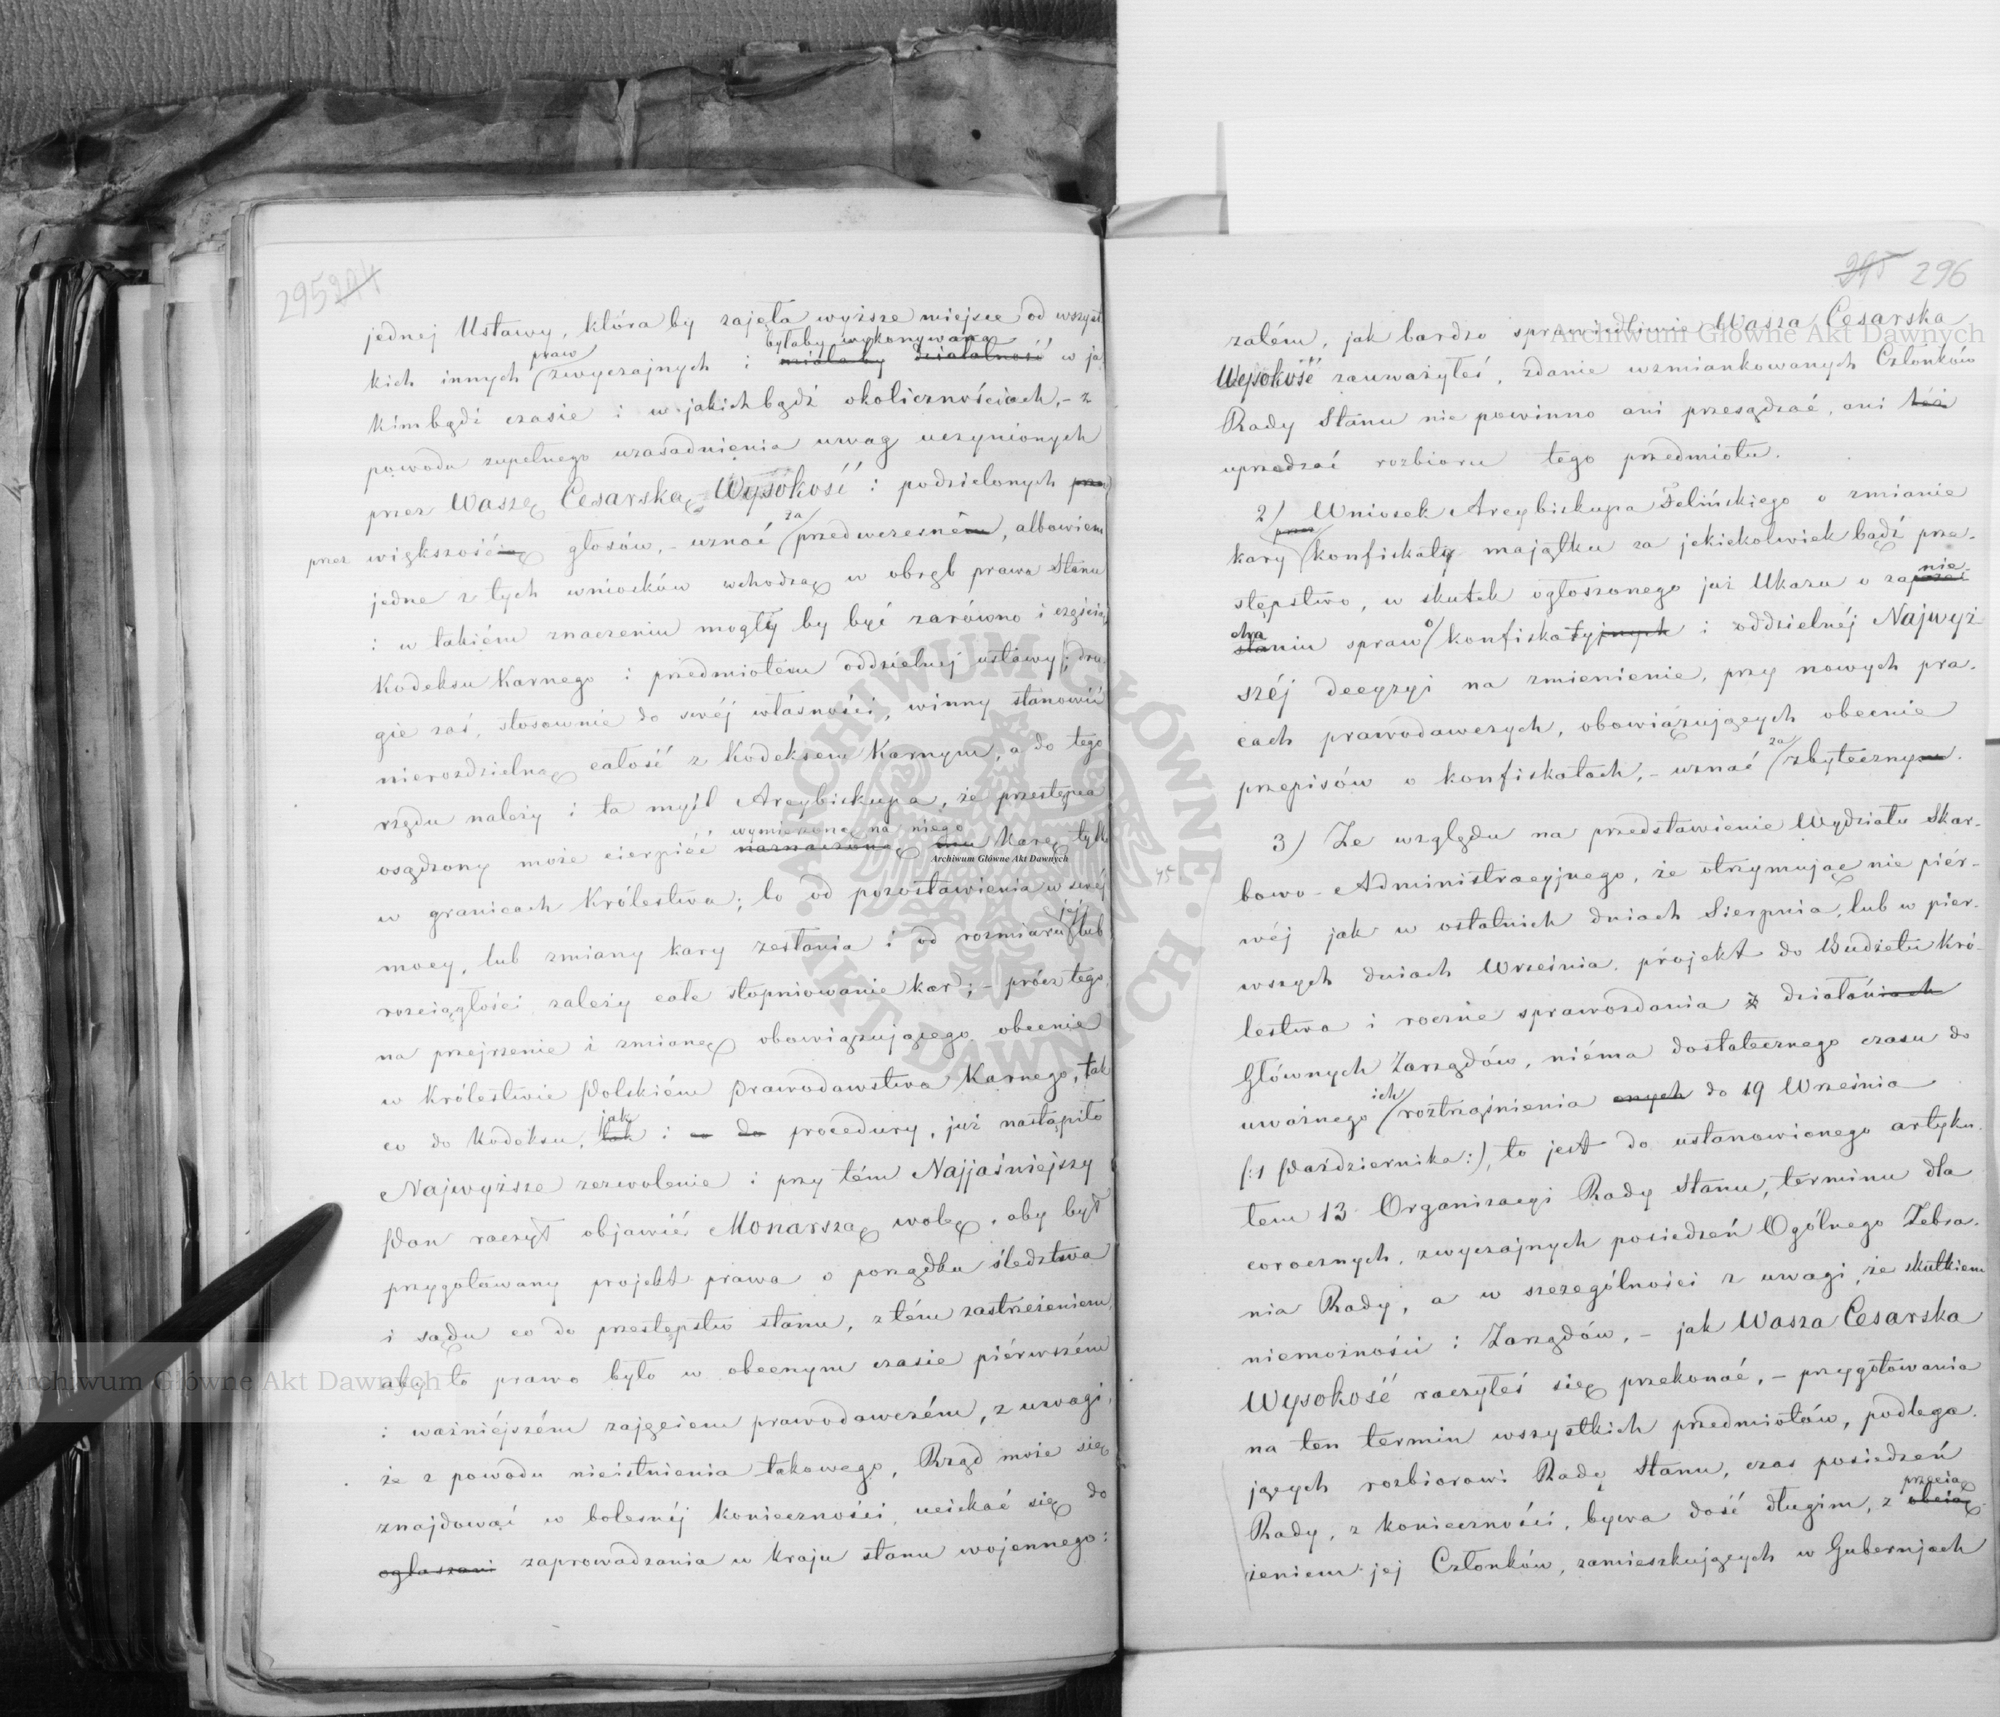 295 294
jednej Ustawy, która by zajęła wyższe miejsce od wszyst
byłaby wykonywaną
kich innych praw zwyczajnych i miałaby działalność w ja
kimbądź czasie i w jakichbądź okolicznościach, - z
powodu zupełnego uzasadnienia uwag uczynionych
przez Waszę Cesarską Wysokość i podzielonych przez
przez większością głosów, - uznać za przedwczesném, albowiem
jedne z tych wniosków wchodzą w obręb prawa Stanu
i w takiém znaczeniu mogły by być zarówno i częścią
Kodeksu Karnego i przedmiotem oddzielnej ustawy; dru
gie zaś, stosownie do swéj własności, winny stanowić
nierozdzielną całość z Kodeksem Karnym, a do tego
rzędu należy i ta myśl Arcybiskupa, że przestępca
wymierzoną na niego
osądzony może cierpiéć naznaczoną mu karę tylko
w granicach Królestwa; bo od pozostawienia w swéj
mocy, lub zmiany kary zesłania i od rozmiaru jej lub
rozciągłości zależy całe stopniowanie kar; - prócz tego
na przejrzenie i zmianę obowiązującego obecnie
w Królestwie Polskiém Prawodawstwa Karnego, tak
co do Kodeksu, tak jak i co do procedury, już nastąpiło
Najwyższe zezwolenie i przy tém Najjaśniejszy
Pan raczył objawić Monarszą wolę, aby był
przygotowany projekt prawa o porządku śledztwa
i sądu co do przestępstw stanu, z tém zastrzeżeniem,
aby to prawo było w obecnym czasie piérwszém
i ważniéjszém zajęciem prawodawczém, z uwagi,
że z powodu nieistnienia takowego, Rząd może się
znajdować w bolesnéj konieczności uciekać się do
ogłaszani zaprowadzania w kraju stanu wojennego:
295 296
zatém, jak bardzo sprawiedliwie Wasza Cesarska
Wysokość zauważyłeś, zdanie wzmiankowanych Członków
Rady Stanu nie powinno ani przesądzać, ani też
uprzedzać rozbioru tego przedmiotu.
2) Wniosek Arcybiskupa Felińskiego o zmianie
kary przez konfiskaty majątku za jakiekolwiek bądź prze-
stępstwo, w skutek ogłoszonego już Ukazu o zaprzesta nie-
cha
staniu spraw o konfiskatyjnych i oddzielnéj Najwyż
széj decyzyi na zmienienie, przy nowych pra-
cach prawodawczych, obowiązujących obecnie
przepisów o konfiskatach, - uznać za zbytecznym.
3) Ze względu na przedstawienie Wydziału Skar-
bowo-Administracyjnego, że otrzymując nie piér-
wéj jak w ostatnich dniach Sierpnia, lub w pier-
wszych dniach Września projekt do Budżetu Kró-
lestwa i roczne sprawozdania z działaniach
Głównych Zarządów, niéma dostatecznego czasu do
uważnego ich roztrząśnienia onych do 19 Września
(:1 Października:), to jest do ustanowionego artyku-
łem 13 Organizacyi Rady Stanu, terminu dla
corocznych, zwyczajnych posiedzeń Ogólnego Zebra-
nia Rady, a w szczególności z uwagi, że skutkiem
niemożności i Zarządów, - jak Wasza Cesarska
Wysokość raczyłeś się przekonać, - przygotowania
na ten termin wszystkich przedmiotów, podlega-
jących rozbiorowi Rady Stanu, czas posiedzeń
Rady, z konieczności, bywa dość długim, z obcią przecią
żeniem jej Członków, zamieszkujących w Gubernjach
Archiwum Główne Akt Dawnych
Archiwum Główne Akt Dawnych
Archiwum Główne Akt Dawnych
ARCHIWUM GŁÓWNE AKT DAWNYCH